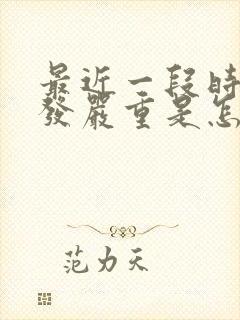 最近一段時
發嚴重是怎
范力天